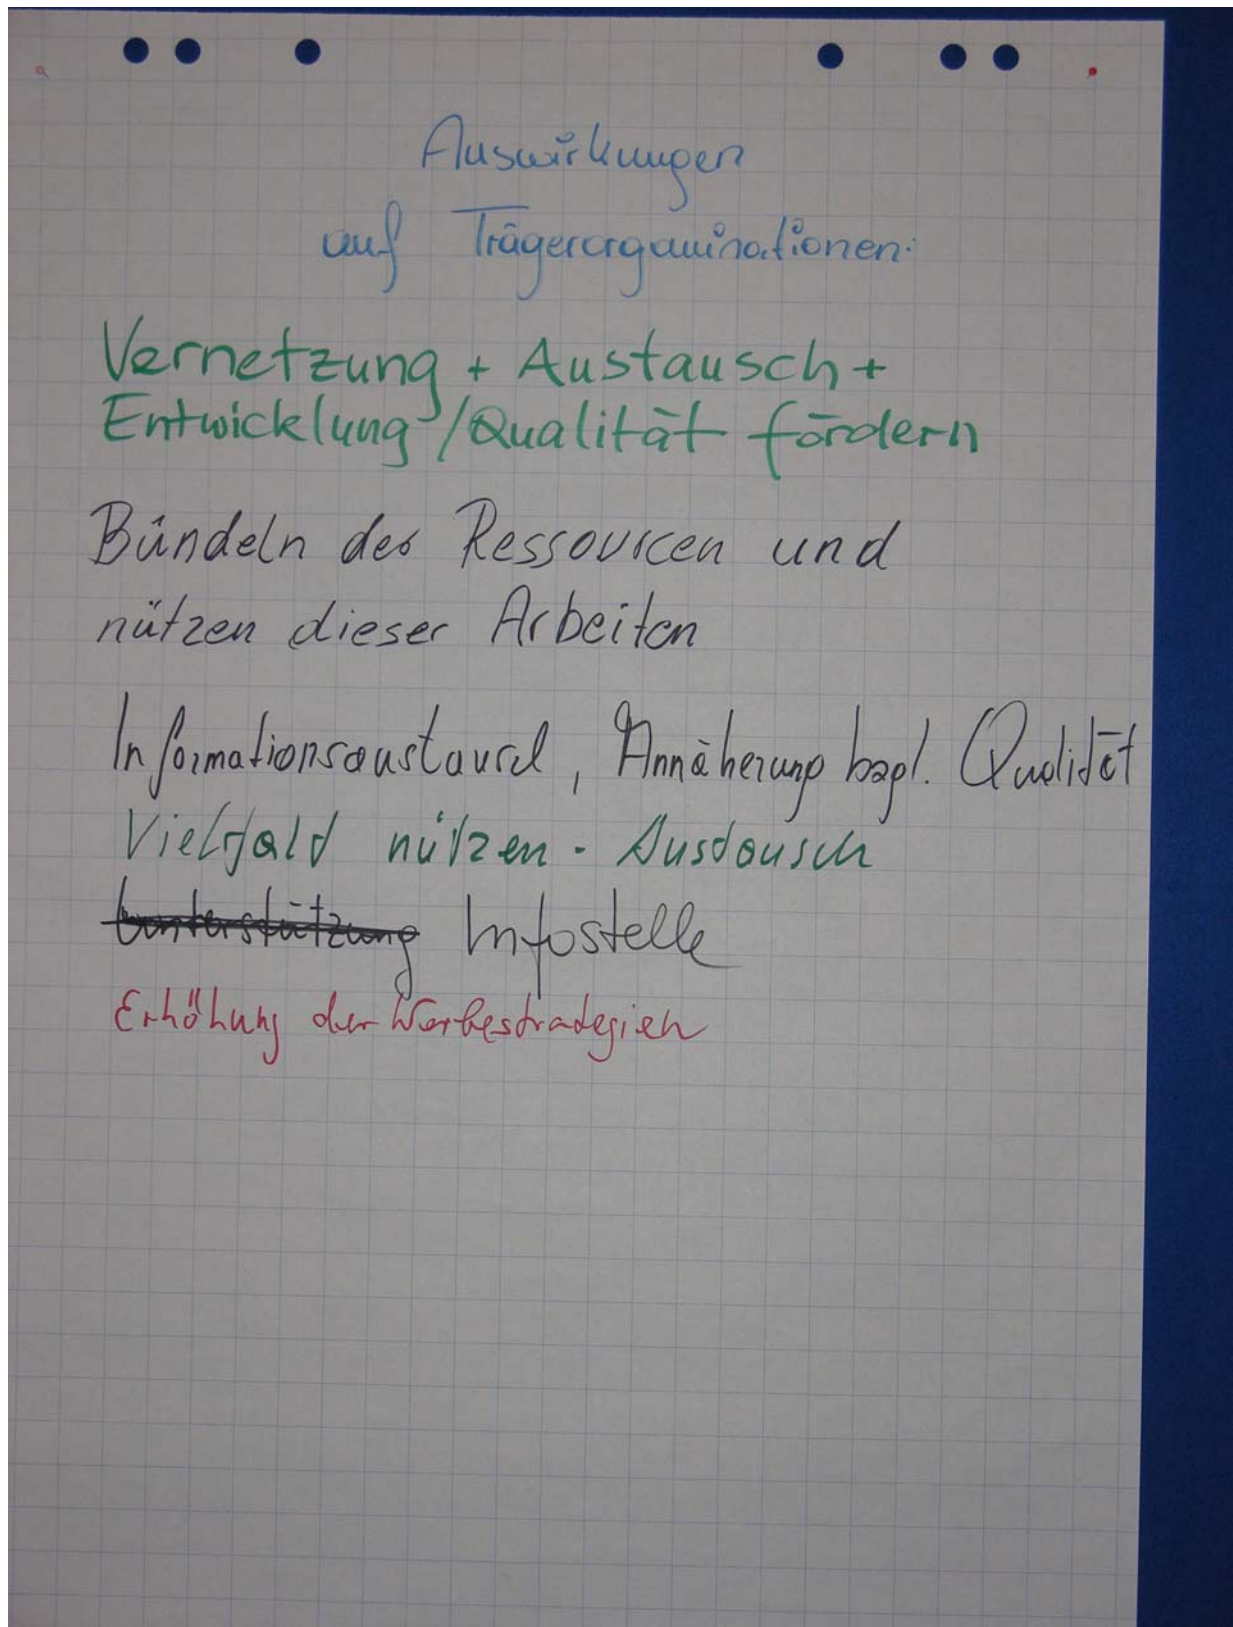 Auswirkungen
auf Trägerorganisationen:
Vernetzung + Austausch +
Entwicklung/Qualität fördern
Bündeln der Ressourcen und
nützen dieser Arbeiten
Informationsaustausch, Annäherung bzgl. Qualität
Vielfalt nützen - Austausch
Infostelle
Erhöhung der Werbestrategien